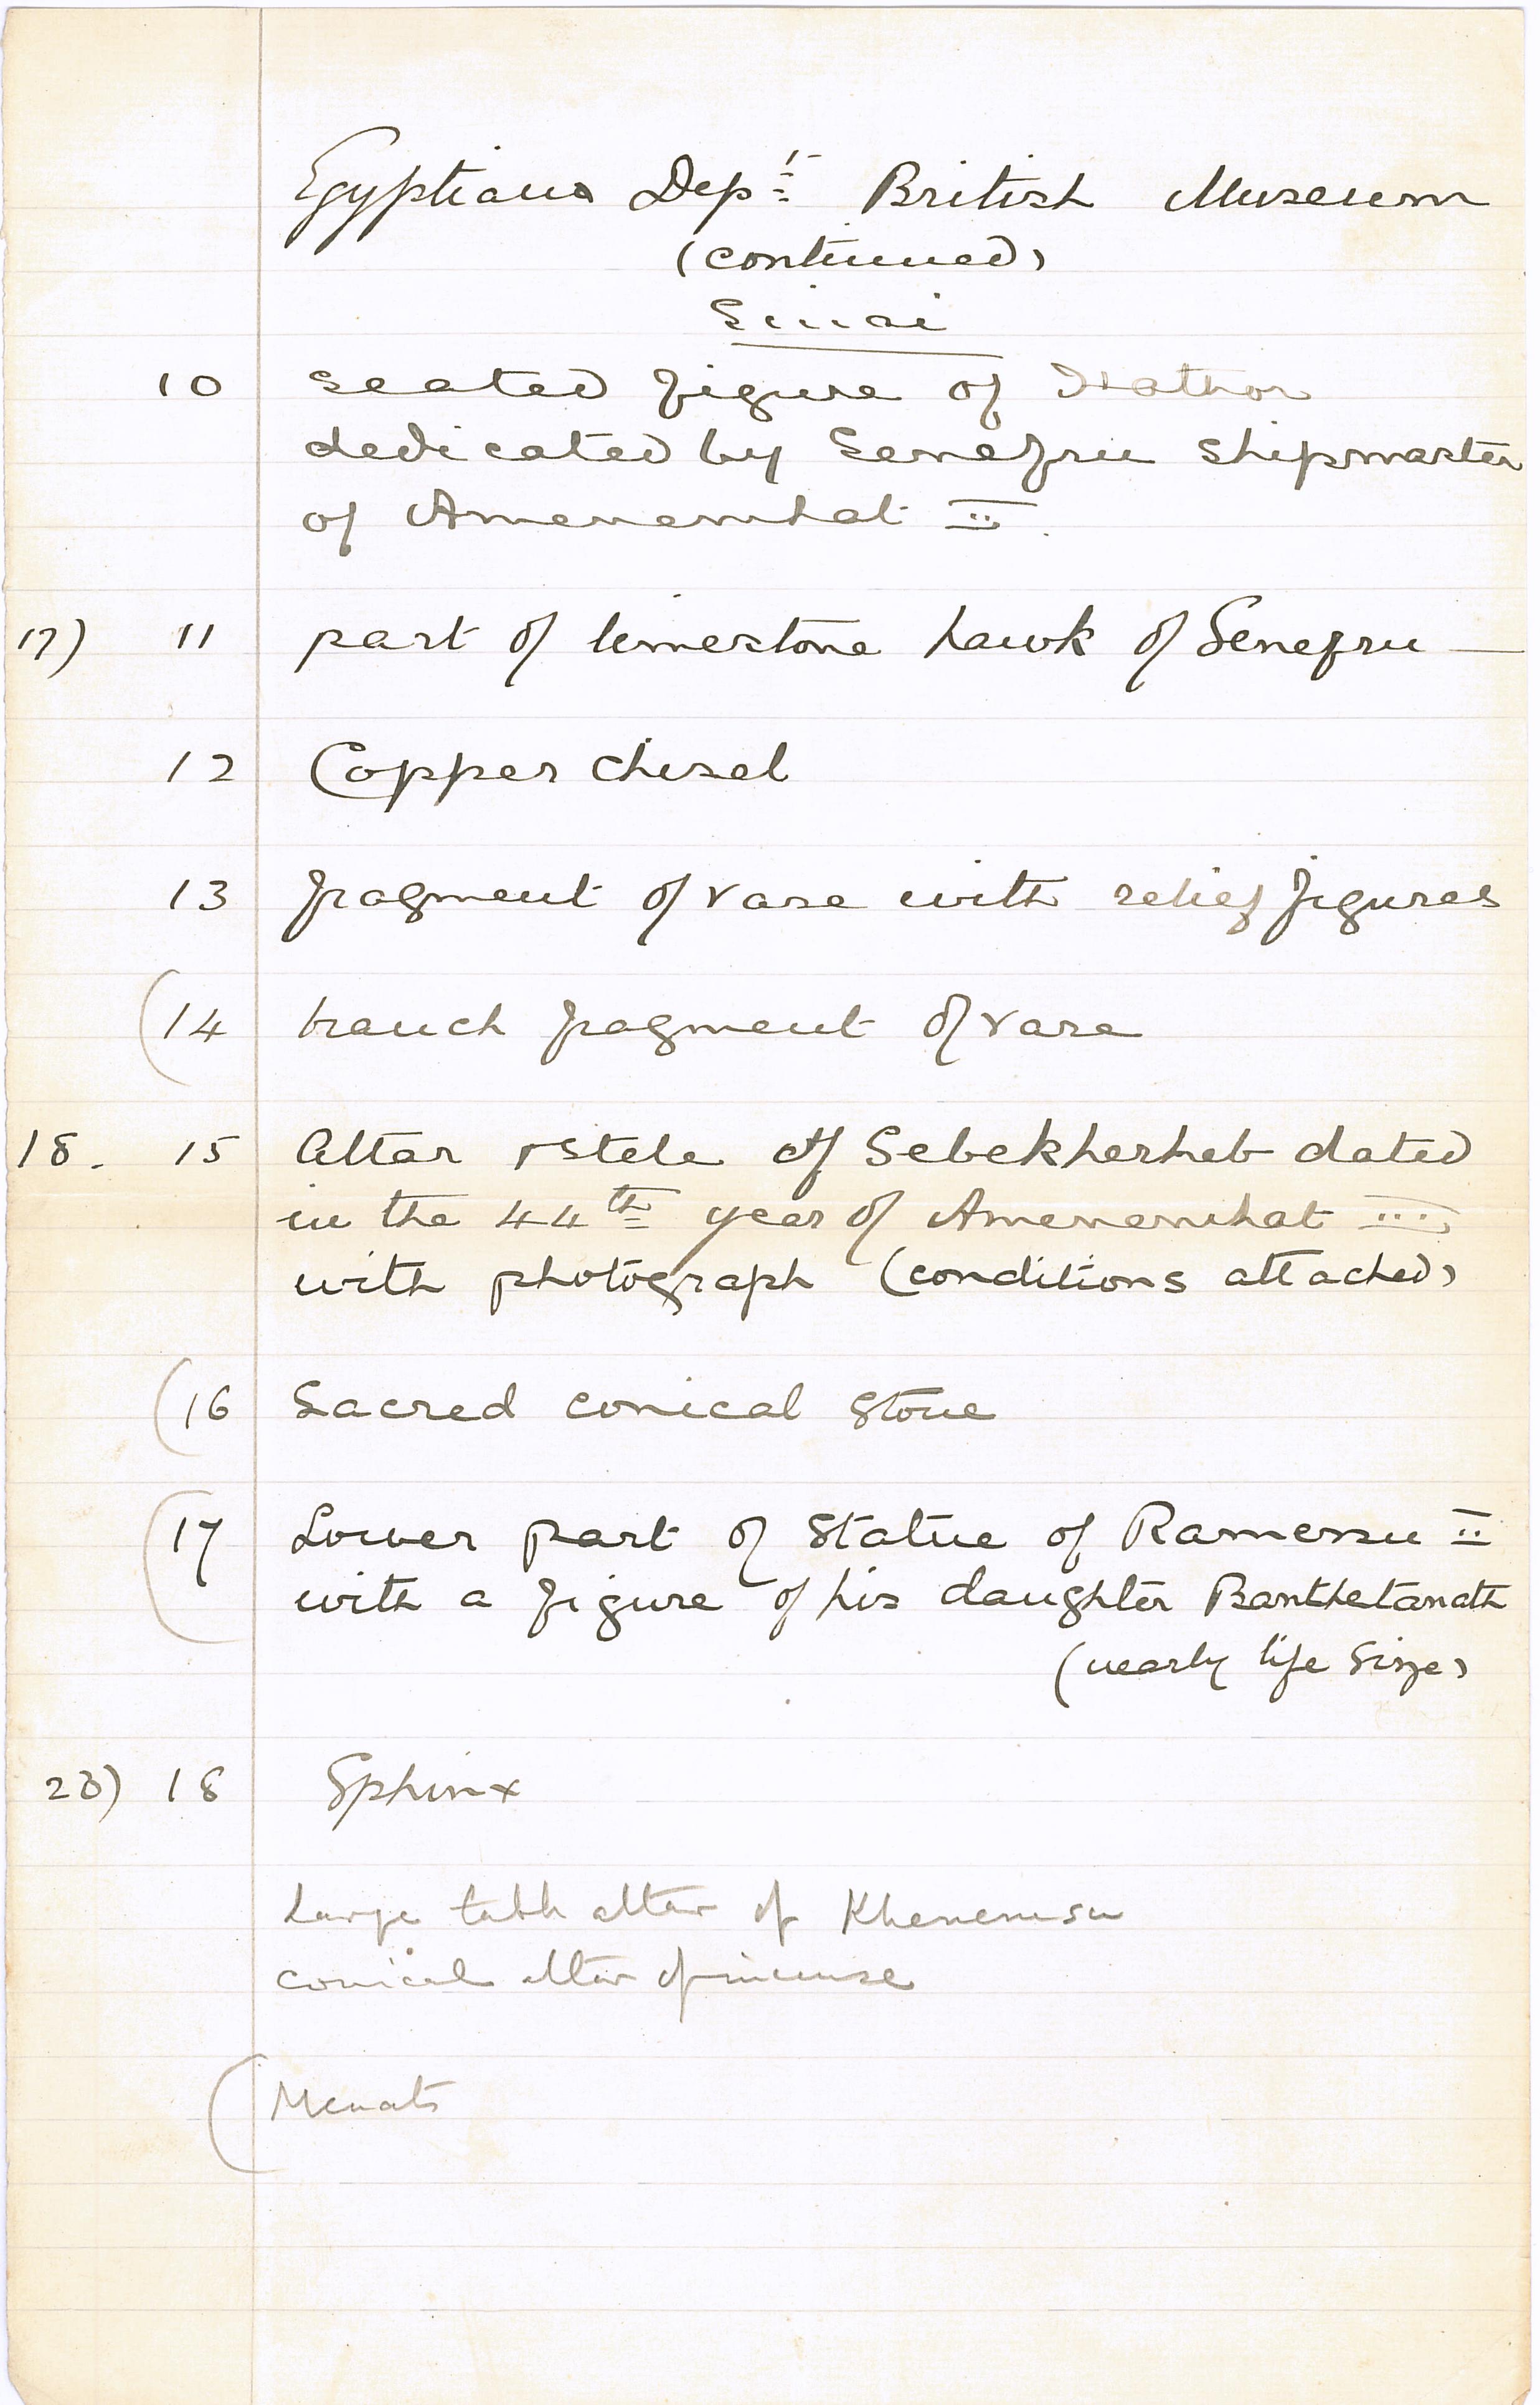 Egyptian Dept British Museum
(continued)
Sinai
10 Seated figure of Hathor
dedicated by Senefru Shipmaster
of Amenemhat II
17) 11 part of limestone hawk of Senefru —
12 Copper chisel
13 fragment of vase with relief figures
(14 branch fragment of vase
18. 15 Altar & stele of Sebekherheb dated
in the 44th year of Amenemhat III
with photograph (conditions attached)
(16 Sacred conical stone
(17 Lower part of Statue of Ramessu II
with a figure of his daughter Banthetanath
(nearly life size)
18 Sphinx
Large table altar of Khenemsu
conical altar of incense
(Menats